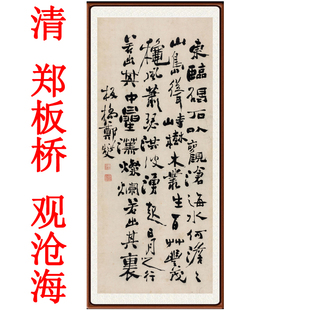 清 郑板桥 观沧海
東臨碣石以觀滄海水何澹〻
山島竦峙樹木叢生百艸豐茂
穐風蕭瑟洪波湧起日月之行
若出其中星漢燦爛若出其裏
板橋鄭燮